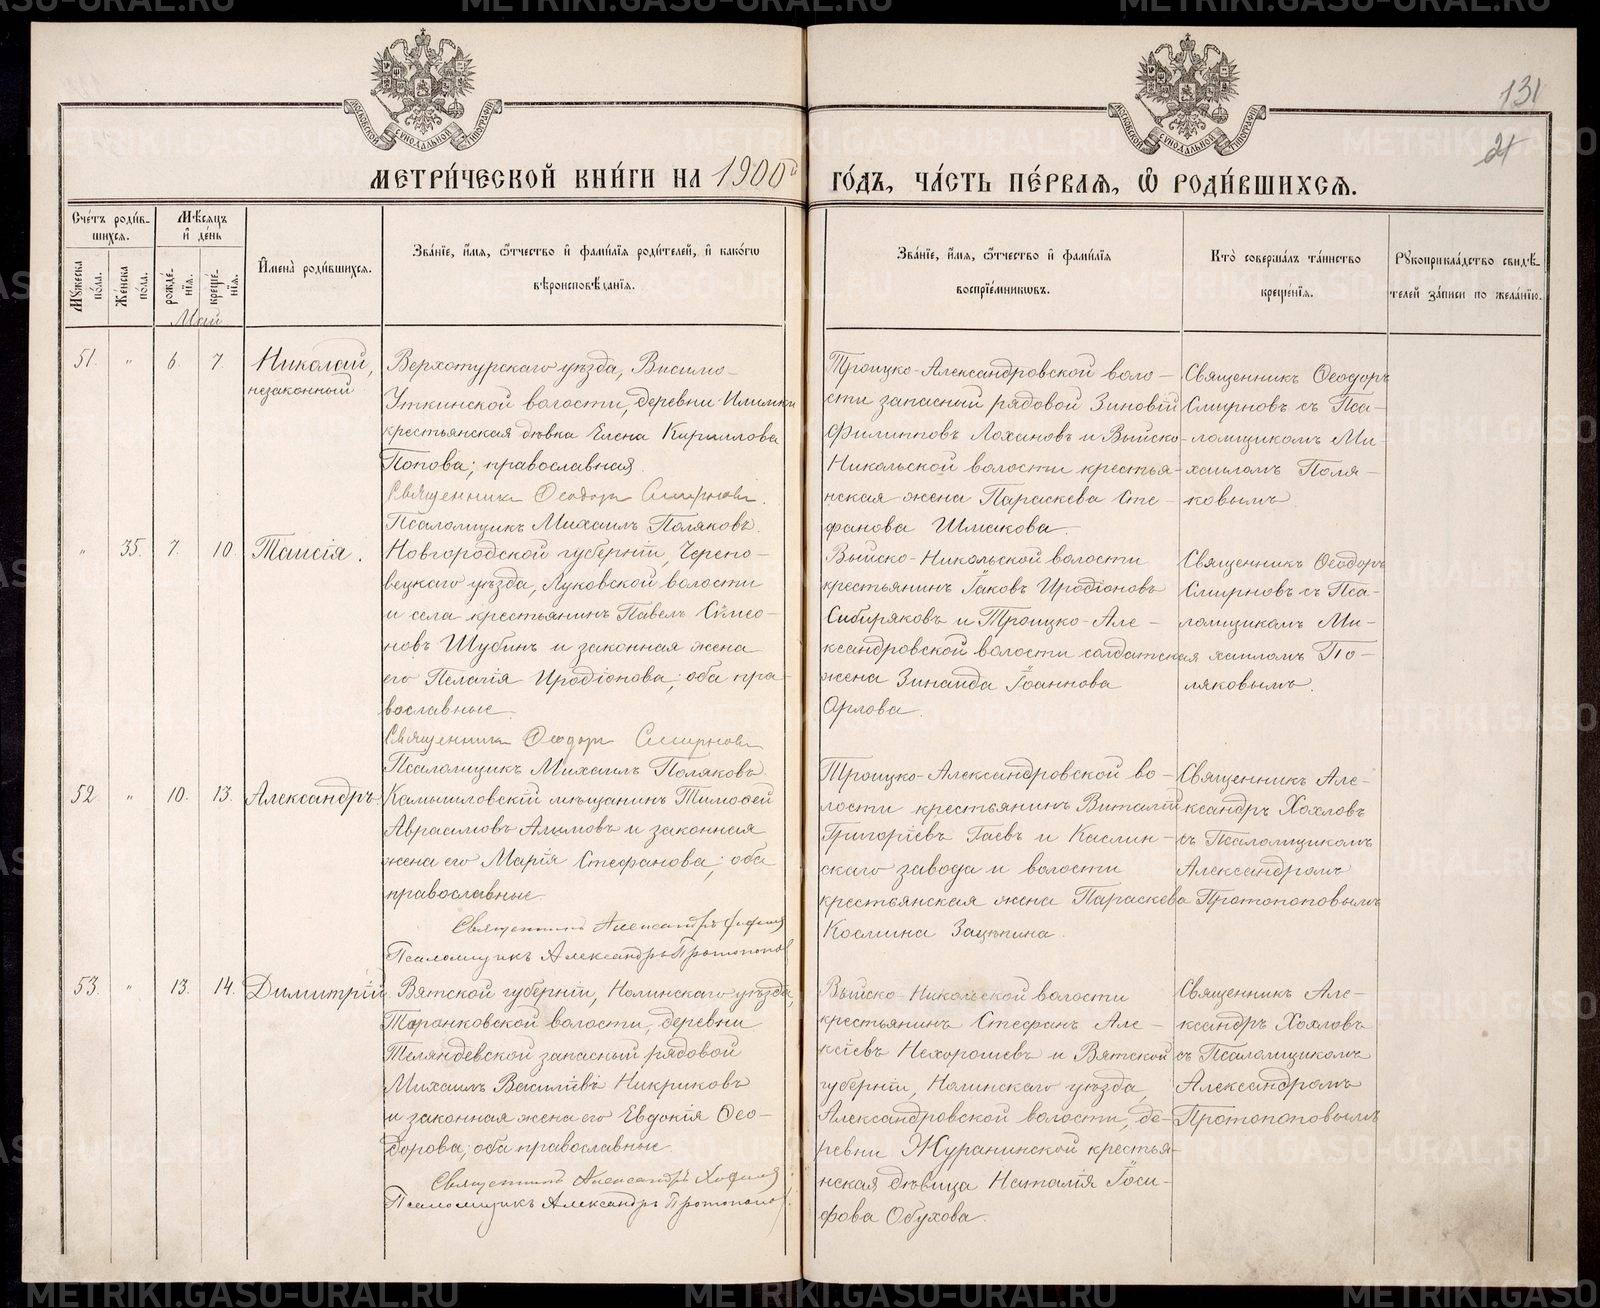 131
21
МОСКОВСКОЙ СѴНОДАЛЬНОЙ ТИПОГРАФІИ
МОСКОВСКОЙ СѴНОДАЛЬНОЙ ТИПОГРАФІИ
МЕТРИ́ЧЕСКОЙ КНИ́ГИ НА 1900й ГО́ДЪ, ЧА́СТЬ ПЕ́РВАѦ, Ѡ҆ РОДИ́ВШИХСѦ.
Сче́тъ роди́в-
шихся.
Мѣ́сяцъ
и҆ де́нь
И҆мена̀ роди́вшихся.
Зва́нїе, и҆́мя, ѻ҆́тчество и҆ фами́лїя роди́телей, и҆ како́гѡ
вѣроисповѣ́данїя.
Зва́нїе, и҆́мя, ѻ҆́тчество и҆ фами́лїя
воспрїе́мникѡвъ.
Кто̀ соверша́лъ та́инство
креще́нїя.
Рꙋкоприкла́дство свидѣ́-
телей за́писи по жела́нїю.
Мꙋ́жеска
по́ла.
Же́нска
по́ла.
рожде́-
нїя.
креще́-
нїя.
Май
51. " 6. 7. Николай,
незаконный
Верхотурскаго уѣзда, Висимо-
Уткинской волости, деревни Илимки
крестьянская дѣвка Елена Кириллова
Попова; православная.
Священникъ Ѳеодоръ Смирновъ.
Псаломщикъ Михаилъ Поляковъ.
Троицко-Александровской воло-
сти запасный рядовой Зиновій
Филипповъ Лохановъ и Выйско-
Никольской волости крестья-
нская жена Параскева Сте-
фанова Шмакова.
Священникъ Ѳеодоръ
Смирновъ съ Пса-
ломщикомъ Ми-
хаиломъ Поля-
ковымъ
" 35. 7. 10. Таисія.
Новгородской губерніи, Черепо-
вецкаго уѣзда, Луковской волости
и села крестьянинъ Павелъ Сѵмео-
новъ Шубинъ и законная жена
его Пелагія Иродіонова; оба пра-
вославные.
Священникъ Ѳеодоръ Смирновъ
Псаломщикъ Михаилъ Поляковъ
Выйско-Никольской волости
крестьянинъ Іаковъ Иродіоновъ
Сибиряковъ и Троицко-Але-
ксандровской волости солдатская
жена Зинаида Іоаннова
Орлова.
Священникъ Ѳеодоръ
Смирновъ съ Пса-
ломщикомъ Ми-
хаиломъ По-
ляковымъ.
52. " 10. 13. Александръ
Камышловскій мѣщанинъ Тимоѳей
Аврамовъ Алимовъ и законная
жена его Марія Стефанова; оба
православные
Священникъ Александръ Хохловъ
Псаломщикъ Александръ Протопопов
Троицко-Александровской во-
лости крестьянинъ Виталій
Григоріевъ Гаевъ и Каслин-
скаго завода и волости
крестьянская жена Параскева
Космина Зацѣпина.
Священникъ Але-
ксандръ Хохловъ
съ Псаломщикомъ
Александромъ
Протопоповымъ
53. " 13. 14. Димитрій.
Вятской губерніи, Нолинскаго уѣзда,
Таранковской волости, деревни
Теляндевской запасный рядовой
Михаилъ Василіевъ Никриковъ
и законная жена его Евдокія Ѳео-
дорова; оба православные
Священникъ Александръ Хохловъ
Псаломщикъ Александръ Протопопов
Выйско-Никольской волости
крестьянинъ Стефанъ Але-
ксіевъ Нехорошевъ и Вятской
губерніи, Нолинскаго уѣзда,
Александровской волости, де-
ревни Журанинской крестья-
нская дѣвица Наталія Іоси-
фова Обухова.
Священникъ Але-
ксандръ Хохловъ
съ Псаломщикомъ
Александромъ
Протопоповымъ
METRIKI.GASO-URAL.RU